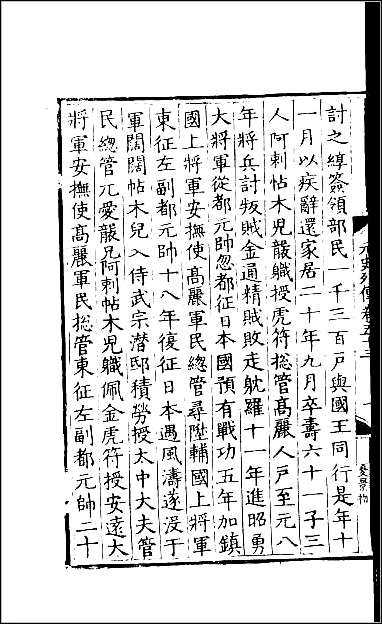 討之綧簽領部民一千三百戶與國王同行是年十
一月以疾辭還家居二十年九月卒壽六十一子三
人阿剌帖木兒襲職授虎符総管髙麗人戶至元八
年將兵討叛賊金通精賊敗走躭羅十一年進昭勇
大將軍從都元帥忽都征日本國預有戰功五年加鎮
國上將軍安撫使髙麗軍民總管尋陞輔國上將軍
東征左副都元帥十八年復征日本遇風濤遂没于
軍闊闊帖木兒入侍武宗潛邸積勞授太中大夫管
民總管兀愛襲兄阿剌帖木兒職佩金虎符授安遠大
將軍安撫使髙麗軍民総管東征左副都元帥二十